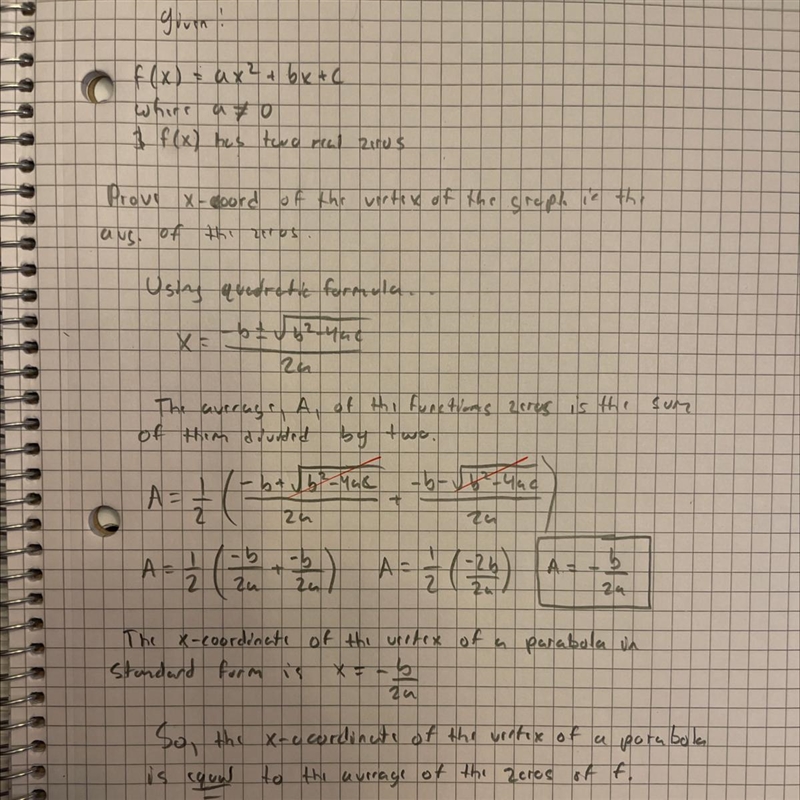 given!
f(x) = ax² + bx + c
where a ≠ 0
& f(x) has two real zeros
Prove x-coord of the vertex of the graph is the
avg. of the zeros.
Using quadratic formula...
x = (-b ± √(b²-4ac))/(2a)
The average, A, of the functions zeros is the sum
of them divided by two.
A = 1/2 ((-b + √(b²-4ac))/(2a) + (-b - √(b²-4ac))/(2a))
A = 1/2 (-b/2a + -b/2a) A = 1/2 (-2b/2a) A = -b/2a
The x-coordinate of the vertex of a parabola in
standard form is x = -b/2a
So, the x-coordinate of the vertex of a parabola
is equal to the average of the zeros of f.